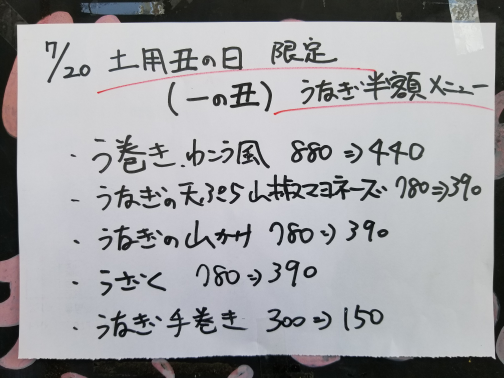 7/20 土用丑の日 限定
(一の丑) うなぎ半額メニュー
・う巻き ゆこう風 880⇒440
・うなぎの天ぷら山椒マヨネーズ 780⇒390
・うなぎの山かけ 780⇒390
・うざく 780⇒390
・うなぎ手巻き 300⇒150